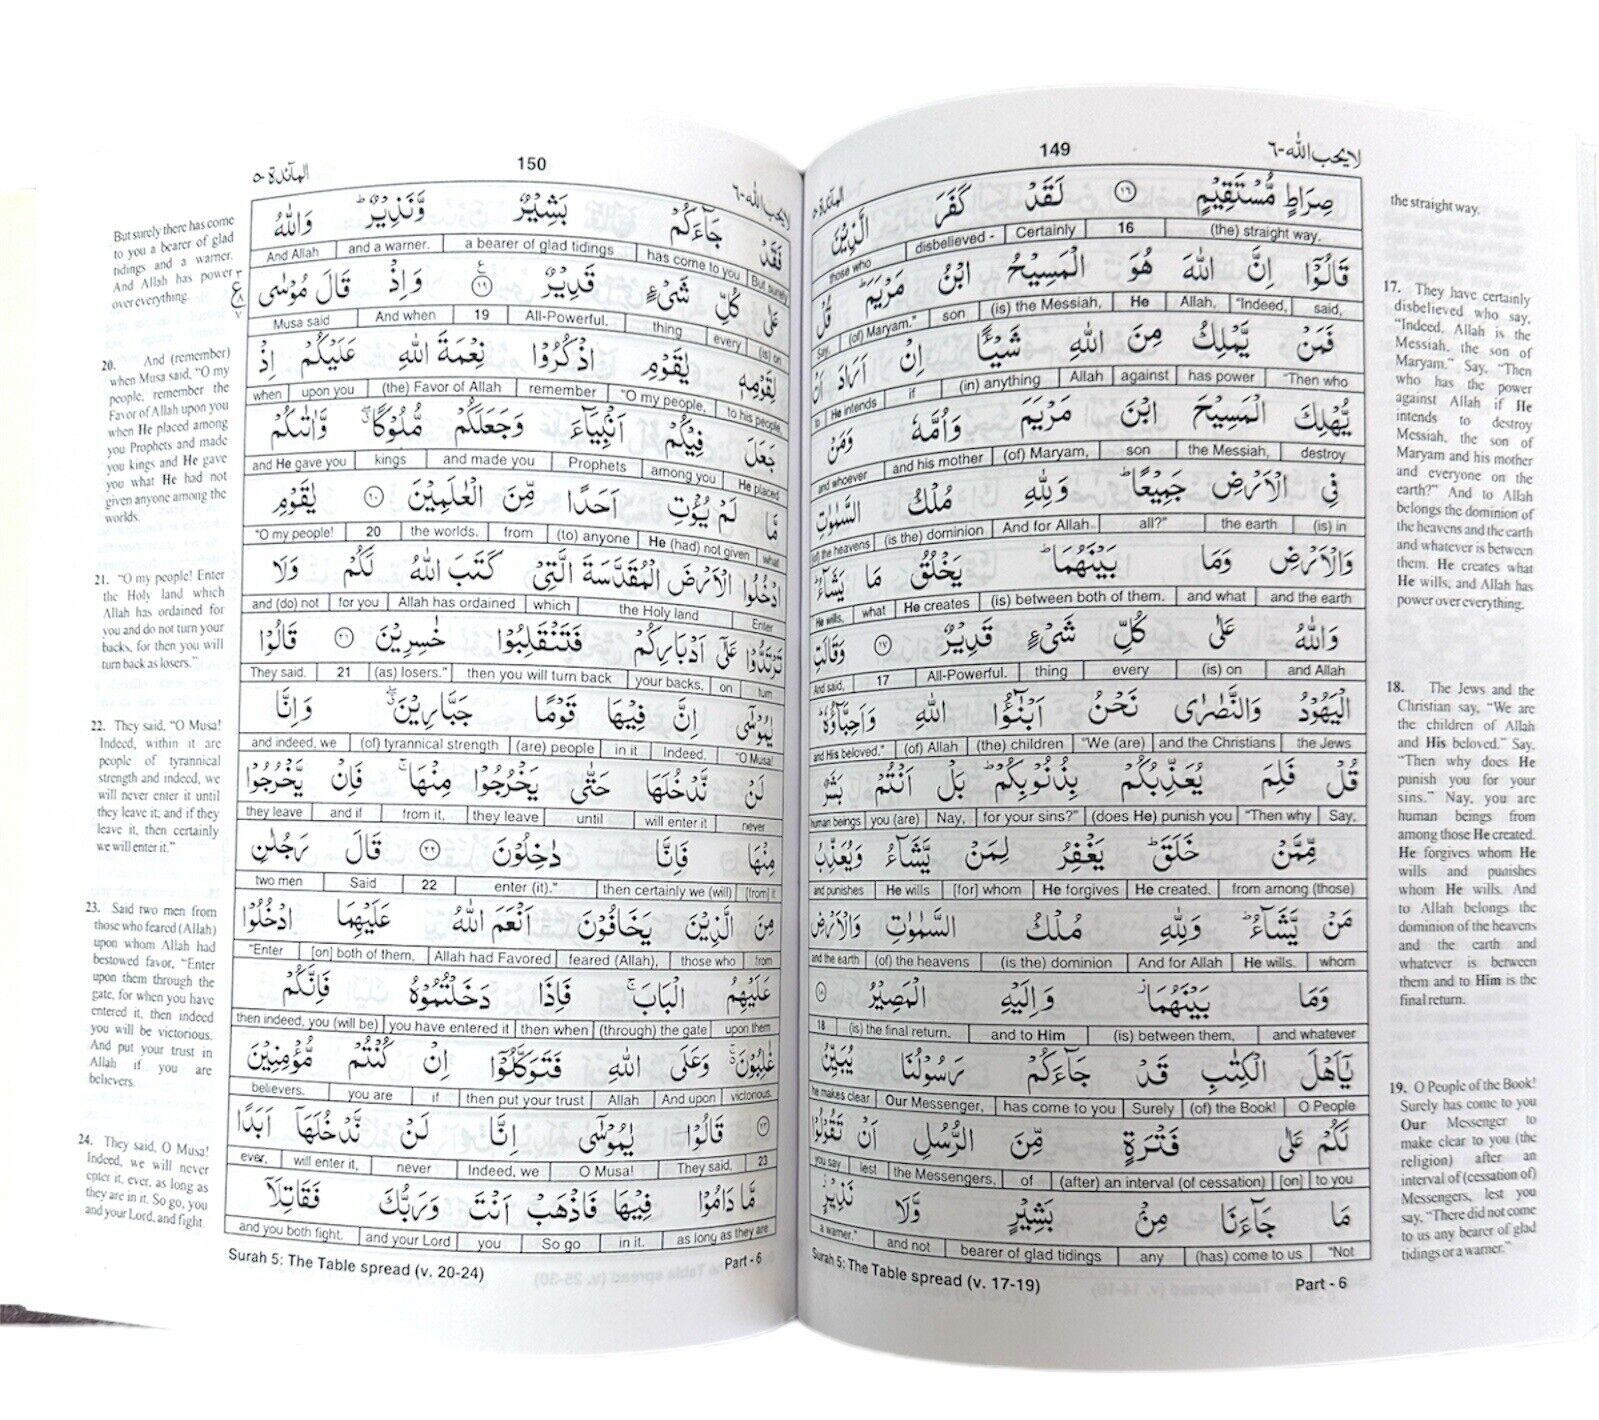 لا يحب الله ٦
149
المآئدة ٥
صِرَاطٍ مُّسْتَقِيْمٍ ١٦ لَقَدْ كَفَرَ الَّذِيْنَ
(the) straight way. 16 Certainly disbelieved - those who
قَالُوْٓا اِنَّ اللّٰهَ هُوَ الْمَسِيْحُ ابْنُ مَرْيَمَ ؕ قُلْ
said, "Indeed, Allah, He (is) the Messiah, son (of) Maryam." Say,
فَمَنْ يَّمْلِكُ مِنَ اللّٰهِ شَيْـًٔا اِنْ اَرَادَ اَنْ
"Then who has power against Allah (in) anything if He intends to
يُّهْلِكَ الْمَسِيْحَ ابْنَ مَرْيَمَ وَاُمَّهٗ وَمَنْ
destroy the Messiah, son (of) Maryam, and his mother and whoever
فِي الْاَرْضِ جَمِيْعًا ؕ وَلِلّٰهِ مُلْكُ السَّمٰوٰتِ
(is) in the earth all?" And for Allah (is the) dominion (of) the heavens
وَالْاَرْضِ وَمَا بَيْنَهُمَا ؕ يَخْلُقُ مَا يَشَآءُ ؕ
and the earth and what (is) between both of them. He creates what He wills,
وَاللّٰهُ عَلٰى كُلِّ شَيْءٍ قَدِيْرٌ ١٧ وَقَالَتِ
and Allah (is) on every thing All-Powerful. 17 And said,
الْيَهُوْدُ وَالنَّصٰرٰى نَحْنُ اَبْنٰٓؤُا اللّٰهِ وَاَحِبَّآؤُهٗ ؕ
the Jews and the Christians "We (are) (the) children (of) Allah and His beloved."
قُلْ فَلِمَ يُعَذِّبُكُمْ بِذُنُوْبِكُمْ ؕ بَلْ اَنْتُمْ بَشَرٌ
Say, "Then why (does He) punish you for your sins?" Nay, you (are) human beings
مِّمَّنْ خَلَقَ ؕ يَغْفِرُ لِمَنْ يَّشَآءُ وَيُعَذِّبُ
from among (those) He created. He forgives [for] whom He wills and punishes
مَنْ يَّشَآءُ ؕ وَلِلّٰهِ مُلْكُ السَّمٰوٰتِ وَالْاَرْضِ
whom He wills. And for Allah (is the) dominion (of) the heavens and the earth
وَمَا بَيْنَهُمَا ۫ وَاِلَيْهِ الْمَصِيْرُ ١٨
and whatever (is) between them, and to Him (is) the final return. 18
يٰٓاَهْلَ الْكِتٰبِ قَدْ جَآءَكُمْ رَسُوْلُنَا يُبَيِّنُ
O People (of) the Book! Surely has come to you Our Messenger, he makes clear
لَكُمْ عَلٰى فَتْرَةٍ مِّنَ الرُّسُلِ اَنْ تَقُوْلُوْا
to you [on] (after) an interval (of cessation) of the Messengers, lest you say
مَا جَآءَنَا مِنْۢ بَشِيْرٍ وَّلَا نَذِيْرٍ ؗ
"Not (has) come to us any bearer of glad tidings and not a warner."
Surah 5: The Table spread (v. 17-19)
Part - 6
the straight way.
17. They have certainly
disbelieved who say,
"Indeed, Allah is the
Messiah, the son of
Maryam." Say, "Then
who has the power
against Allah if He
intends to destroy
Messiah, the son of
Maryam and his mother
and everyone on the
earth?" And to Allah
belongs the dominion of
the heavens and the earth
and whatever is between
them. He creates what
He wills, and Allah has
power over everything.
18. The Jews and the
Christian say, "We are
the children of Allah
and His beloved." Say,
"Then why does He
punish you for your
sins." Nay, you are
human beings from
among those He created.
He forgives whom He
wills and punishes
whom He wills. And
to Allah belongs the
dominion of the heavens
and the earth and
whatever is between
them and to Him is the
final return.
19. O People of the Book!
Surely has come to you
Our Messenger to
make clear to you (the
religion) after an
interval of (cessation of)
Messengers, lest you
say, "There did not come
to us any bearer of glad
tidings or a warner."
لا يحب الله ٦
150
المآئدة ٥
فَقَدْ جَآءَكُمْ بَشِيْرٌ وَّنَذِيْرٌ ؕ وَاللّٰهُ
But surely has come to you a bearer of glad tidings and a warner. And Allah
عَلٰى كُلِّ شَيْءٍ قَدِيْرٌ ١٩ وَاِذْ قَالَ مُوْسٰى
(is) on every thing All-Powerful. 19 And when Musa said
لِقَوْمِهٖ يٰقَوْمِ اذْكُرُوْا نِعْمَةَ اللّٰهِ عَلَيْكُمْ اِذْ
to his people, "O my people, remember (the) Favor of Allah upon you when
جَعَلَ فِيْكُمْ اَنْۢبِيَآءَ وَجَعَلَكُمْ مُّلُوْكًا ۗ وَّاٰتٰىكُمْ
He placed among you Prophets and made you kings and He gave you
مَّا لَمْ يُؤْتِ اَحَدًا مِّنَ الْعٰلَمِيْنَ ٢٠ يٰقَوْمِ
what He (had) not given (to) anyone from the worlds. 20 "O my people!
ادْخُلُوا الْاَرْضَ الْمُقَدَّسَةَ الَّتِيْ كَتَبَ اللّٰهُ لَكُمْ وَلَا
Enter the Holy land which Allah has ordained for you and (do) not
تَرْتَدُّوْا عَلٰٓى اَدْبَارِكُمْ فَتَنْقَلِبُوْا خٰسِرِيْنَ ٢١ قَالُوْا
turn on your backs, then you will turn back (as) losers." 21 They said.
يٰمُوْسٰٓى اِنَّ فِيْهَا قَوْمًا جَبَّارِيْنَ ۖ وَاِنَّا
"O Musa! Indeed, in it (are) people (of) tyrannical strength and indeed, we
لَنْ نَّدْخُلَهَا حَتّٰى يَخْرُجُوْا مِنْهَا ۚ فَاِنْ يَّخْرُجُوْا
never will enter it until they leave from it, and if they leave
مِنْهَا فَاِنَّا دٰخِلُوْنَ ٢٢ قَالَ رَجُلٰنِ
[from] it then certainly we (will) enter (it)." 22 Said two men
مِنَ الَّذِيْنَ يَخَافُوْنَ اَنْعَمَ اللّٰهُ عَلَيْهِمَا ادْخُلُوْا
from those who feared (Allah), Allah had Favored [on] both of them, "Enter
عَلَيْهِمُ الْبَابَ ۚ فَاِذَا دَخَلْتُمُوْهُ فَاِنَّكُمْ
upon them (through) the gate then when you have entered it then indeed, you (will be)
غٰلِبُوْنَ ۚ وَعَلَى اللّٰهِ فَتَوَكَّلُوْٓا اِنْ كُنْتُمْ مُّؤْمِنِيْنَ
victorious. And upon Allah then put your trust if you are believers.
٢٣ قَالُوْا يٰمُوْسٰٓى اِنَّا لَنْ نَّدْخُلَهَآ اَبَدًا
23 They said, O Musa! Indeed, we never will enter it, ever,
مَّا دَامُوْا فِيْهَا فَاذْهَبْ اَنْتَ وَرَبُّكَ فَقَاتِلَآ
as long as they are in it. So go you and your Lord and you both fight.
Surah 5: The Table spread (v. 20-24)
Part - 6
But surely there has come
to you a bearer of glad
tidings and a warner.
And Allah has power
over everything.
20. And (remember)
when Musa said, "O my
people, remember the
Favor of Allah upon you
when He placed among
you Prophets and made
you kings and He gave
you what He had not
given anyone among the
worlds.
21. "O my people! Enter
the Holy land which
Allah has ordained for
you and do not turn your
backs, for then you will
turn back as losers."
22. They said, "O Musa!
Indeed, within it are
people of tyrannical
strength and indeed, we
will never enter it until
they leave it; and if they
leave it, then certainly
we will enter it."
23. Said two men from
those who feared (Allah)
upon whom Allah had
bestowed favor, "Enter
upon them through the
gate, for when you have
entered it, then indeed
you will be victorious.
And put your trust in
Allah if you are
believers.
24. They said, O Musa!
Indeed, we will never
enter it, ever, as long as
they are in it. So go, you
and your Lord, and fight.
ع